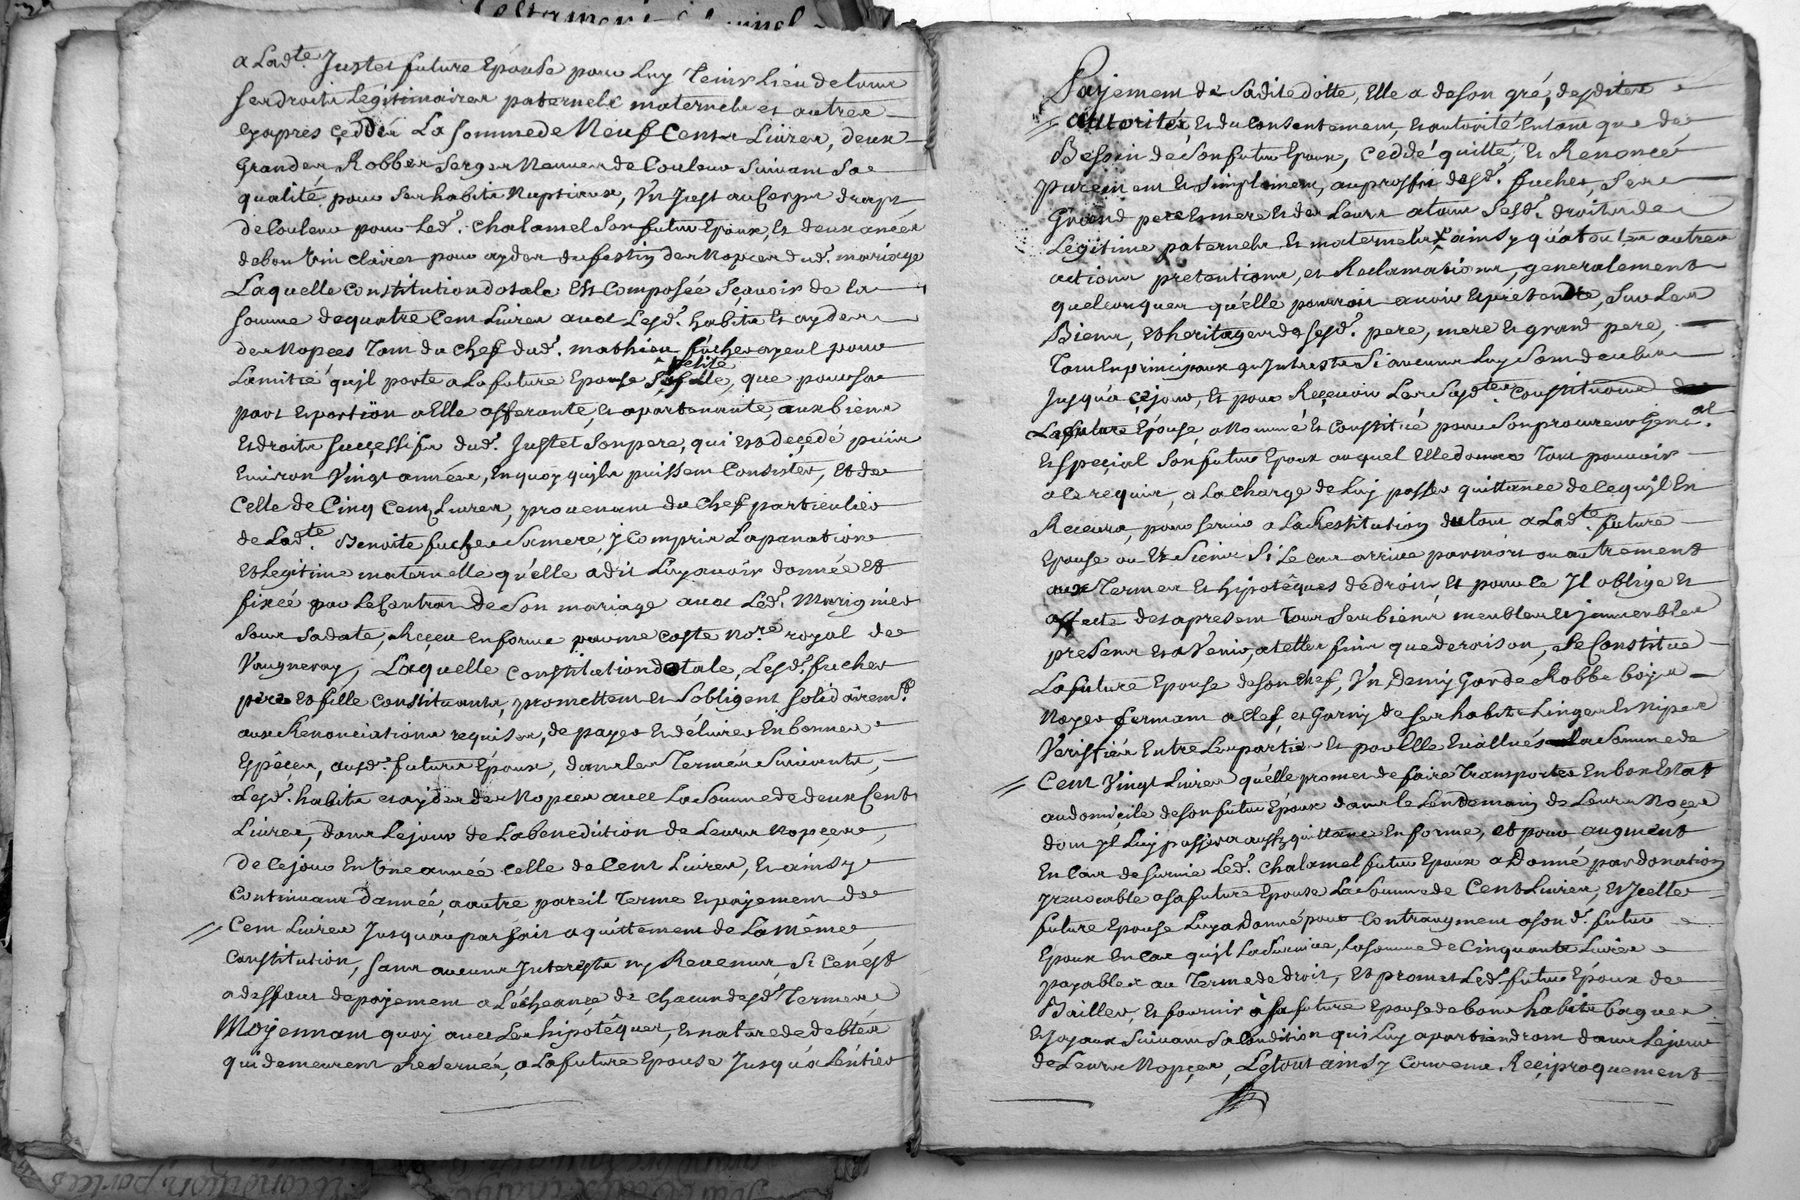 a Ladte. Justet future Epouse pour Luy Tenir Lieu de tous
ses droits Legitimaires paternels maternels et autres
cyapres ceddés La somme de Neuf Cents Livres, deux
Grandes Robbes serges Neuves de Couleur suivant sa
qualité, pour ses habits Nuptiaux, Un Just au Corps drapt
de Couleur pour Led. Chalamel son futur Epoux, Et deux anées
de bon Vin clairet pour ayder au festin des Nopces dud. mariage
Laquelle constitution dotale Est Composée sçavoir de la
somme de quatre Cent Livres avec Lesd. habits Et aydes
des Nopces Tant du chef dud. mathieu fucher ayeul pour
Lamitié qu'jl porte a La future Epouse sa petite fille, que pour sa
part Et portion a Elle afferante, Et apartenante, aux biens
Et droits successifs dud. Justet son pere, qui Est deçedé puis
Environ Vingt années, En quoy qu'jls puissent Consister, Et de
Celle de Cinq Cent Livres, provenant du Chef particulier
de Ladte. Benoite fucher sa mere, y Compris La
Et Legitime maternelle qu'elle a dit Luy avoir donnée Et
fixée par Le Contrat de son mariage avec Led. Marignier
sous sa date, Reçeu En forme par me Coste Nore. royal de
Vaugneray, Laquelle Constitution dotale, Lesd. fucher
pere Et fille Constituants, promettent Et sobligent solidairemt.
aux Renonciations requises, de payer Et délivrer En bonnes
Espèces, ausd. futurs Epoux, dans les Termes suivants,
Lesd. habits et aydes des Nopces avec La somme de deux Cent
Livres, dans Le jour de La benediction de Leurs Nopçes,
de Ce jour En Une année Celle de Cent Livres, Et ainsy
Continuant d'année, a autre pareil Terme Et payement de
Cent Livres Jusqu'au parfait aquittement de La mème
Constitution, sans aucuns Interests ny Revenus, si Ce n'est
a deffaut de payement a L'écheance de chacun desd. Termes
Moyennant quoy avec Les hipotêques, Et nature de debtes
qui demeurent Reservés, a La future Epouse Jusqu'a L'entier
Payement de sadite dotte, Elle a de son gré, desdites
autorités, Et du Consentement, Et autorité Entant que de
Besoin de son futur Epoux, Ceddé quitté, Et Renoncé
purement Et simplement, au proffit desd. fucher, ses
Grand pere Et mere Et de Leurs a tous sesd. droits de
Legitime paternels Et maternels ainsy qu'a toutes autres
actions pretentions, et Reclamations, generalement
quelconques qu'elle pourroit avoir Et pretendre, sur Les
Biens, Et heritages de sesd. pere, mere Et grand pere,
Tant En principaux qu'Interests si aucuns Luy sont deubs
Jusqu'a Ce jour, Et pour Reçevoir Les susdtes. Constitutions
La future Epouse, a Nommé Et Constitué pour son procureur Genal.
Et speçial son futur Epoux auquel Elle donne Tout pouvoir
a Ce requis, a La charge de Luy passer quittance de Ce qu'jl En
Recevra, pour servir a La Restitution du tout a Ladte. future
Epouse ou Es siens si Le cas arrive par mort ou autrement
aux Termes Et hipotêques de droit, Et pour Ce Jl oblige Et
affecte des apresent Tous ses biens meubles Et jmmeubles
presents Et a Venir, a telles fins que de raison, se Constitue
La future Epouse de son Chef, Un Demy Garde Robbe boys
Noyer fermant a Clef, et Garny de ses habits Linges Et Nipes
Verifiés Entre Les parties Et par Elle Evalués La somme de
Cent Vingt Livres qu'elle promet de faire Transporter En bon Estat
au domicile de son futur Epoux dans le Lendemain de Leurs Noçes
dont jl Luy passera aussy quittance En forme, Et pour augment
En Cas de survie Led. Chalamel futur Epoux a Donné par donation
Jrrevocable a sa future Epouse La somme de Cent Livres, Et Jcelle
future Epouse Luy a Donné pour Contraugment a sond. futur
Epoux En Cas qu'jl La survive, La somme de Cinquante Livres
payables au Terme de droit, Et promet Led. futur Epoux de
Bailler, Et fournir à sa future Epouse de bons habits bagues
Et Joyaux suivant sa Condition qui Luy apartiendront dans Le jour
de Leurs Nopçes, Le tout ainsy Convenu Reçiproquement